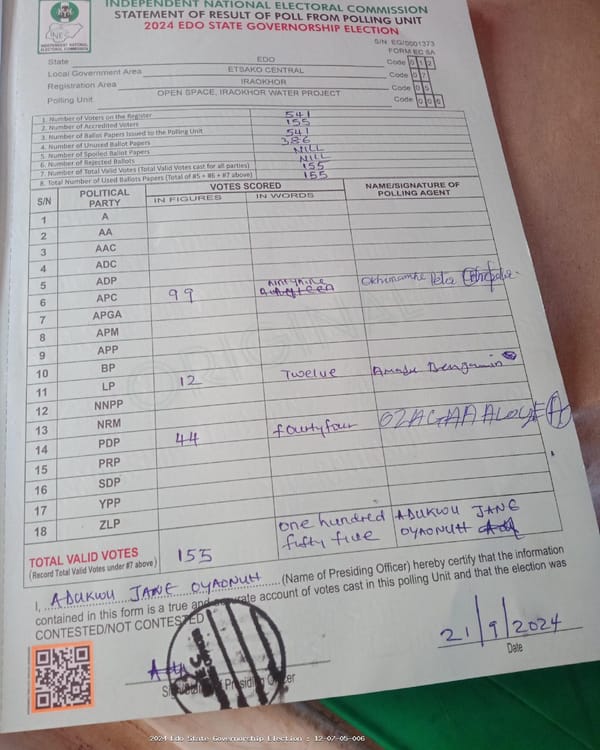 INDEPENDENT NATIONAL ELECTORAL COMMISSION
STATEMENT OF RESULT OF POLL FROM POLLING UNIT
2024 EDO STATE GOVERNORSHIP ELECTION
INEC
INDEPENDENT NATIONAL ELECTORAL COMMISSION
S/N EG/0001373
FORM EC 8A
State EDO Code 0 1 2
Local Government Area ETSAKO CENTRAL Code 0 7
Registration Area IRAOKHOR Code 0 5
Polling Unit OPEN SPACE, IRAOKHOR WATER PROJECT Code 0 0 6
1. Number of Voters on the Register 541
2. Number of Accredited Voters 155
3. Number of Ballot Papers Issued to the Polling Unit 541
4. Number of Unused Ballot Papers 386
5. Number of Spoiled Ballot Papers NILL
6. Number of Rejected Ballots NILL
7. Number of Total Valid Votes (Total Valid Votes cast for all parties) 155
8. Total Number of Used Ballots Papers (Total of #5 + #6 + #7 above) 155
S/N POLITICAL PARTY VOTES SCORED NAME/SIGNATURE OF POLLING AGENT
IN FIGURES IN WORDS
1 A
2 AA
3 AAC
4 ADC
5 ADP
6 APC 99 Ninty nine
7 APGA
8 APM
9 APP
10 BP
11 LP 12 Twelve Amadu Benjamin
12 NNPP
13 NRM
14 PDP 44 fourtyfour
15 PRP
16 SDP
17 YPP
18 ZLP
TOTAL VALID VOTES 155 one hundred fifty five ADUKWU JANE OYAONUH
(Record Total Valid Votes under #7 above)
I, ADUKWU JANE OYAONUH (Name of Presiding Officer) hereby certify that the information
contained in this form is a true and accurate account of votes cast in this polling Unit and that the election was
CONTESTED/NOT CONTESTED
21/9/2024
Date
Presiding Officer
2024 Edo State Governorship Election : 12-07-05-006